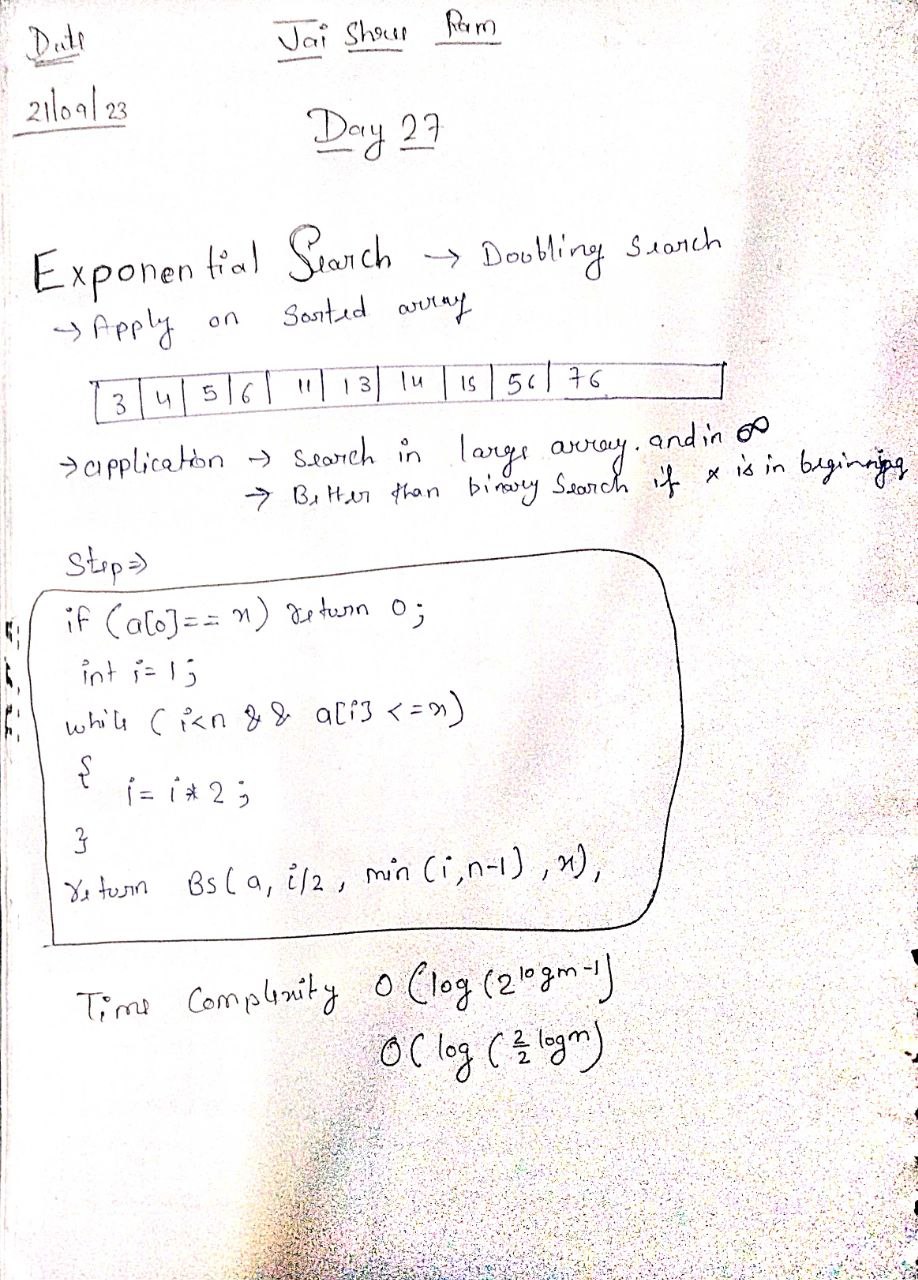 Date
Jai Shree Ram
21/09/23
Day 27
Exponential Search → Doubling Search
→ Apply on Sorted array
3 | 4 | 5 | 6 | 11 | 13 | 14 | 15 | 56 | 76
→ application → Search in large array. and in ∞
→ Better than binary Search if x is in beginning
Step ⇒
if (a[0]==x) return 0;
int i=1;
while (i<n && a[i] <=x)
{
i = i*2;
}
return Bs(a, i/2, min(i,n-1), x),
Time Complexity O(log(2^logm-1)
O(log(2/2 logm)